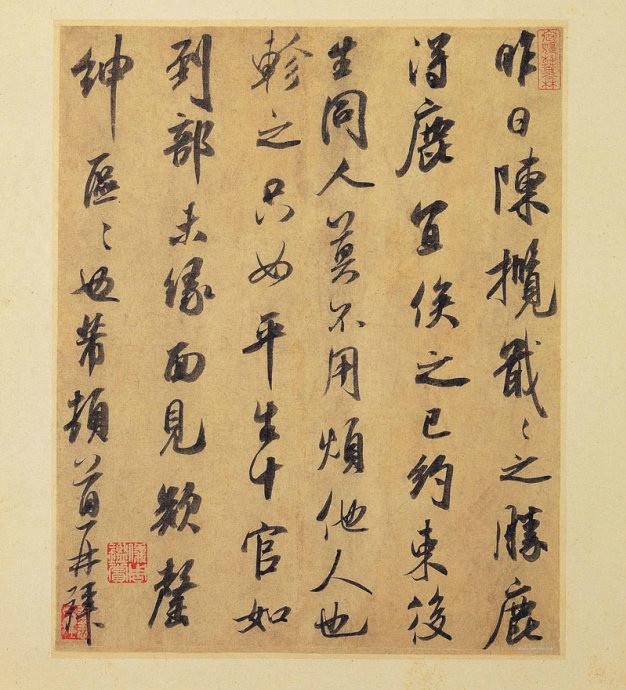 昨日陳攬戢〻之勝鹿
得鹿宜俟之已約束後
生同人莫不用煩他人也
軫之只如平生十官如
到部未緣面見欵罄
紳區〻也芾頓首再拜